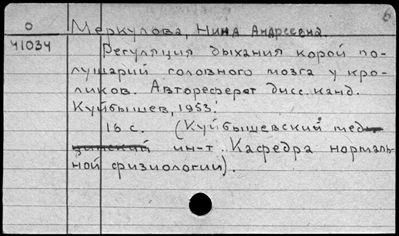 6
О Меркулова, Нина Андреевна.
41034 Регуляция дыхания корой по-
лушарий головного мозга у кро-
ликов. Автореферат дисс. канд.
Куйбышев, 1953.
16 с. (Куйбышевский мед
ин-т. Кафедра нормаль-
ной физиологии).